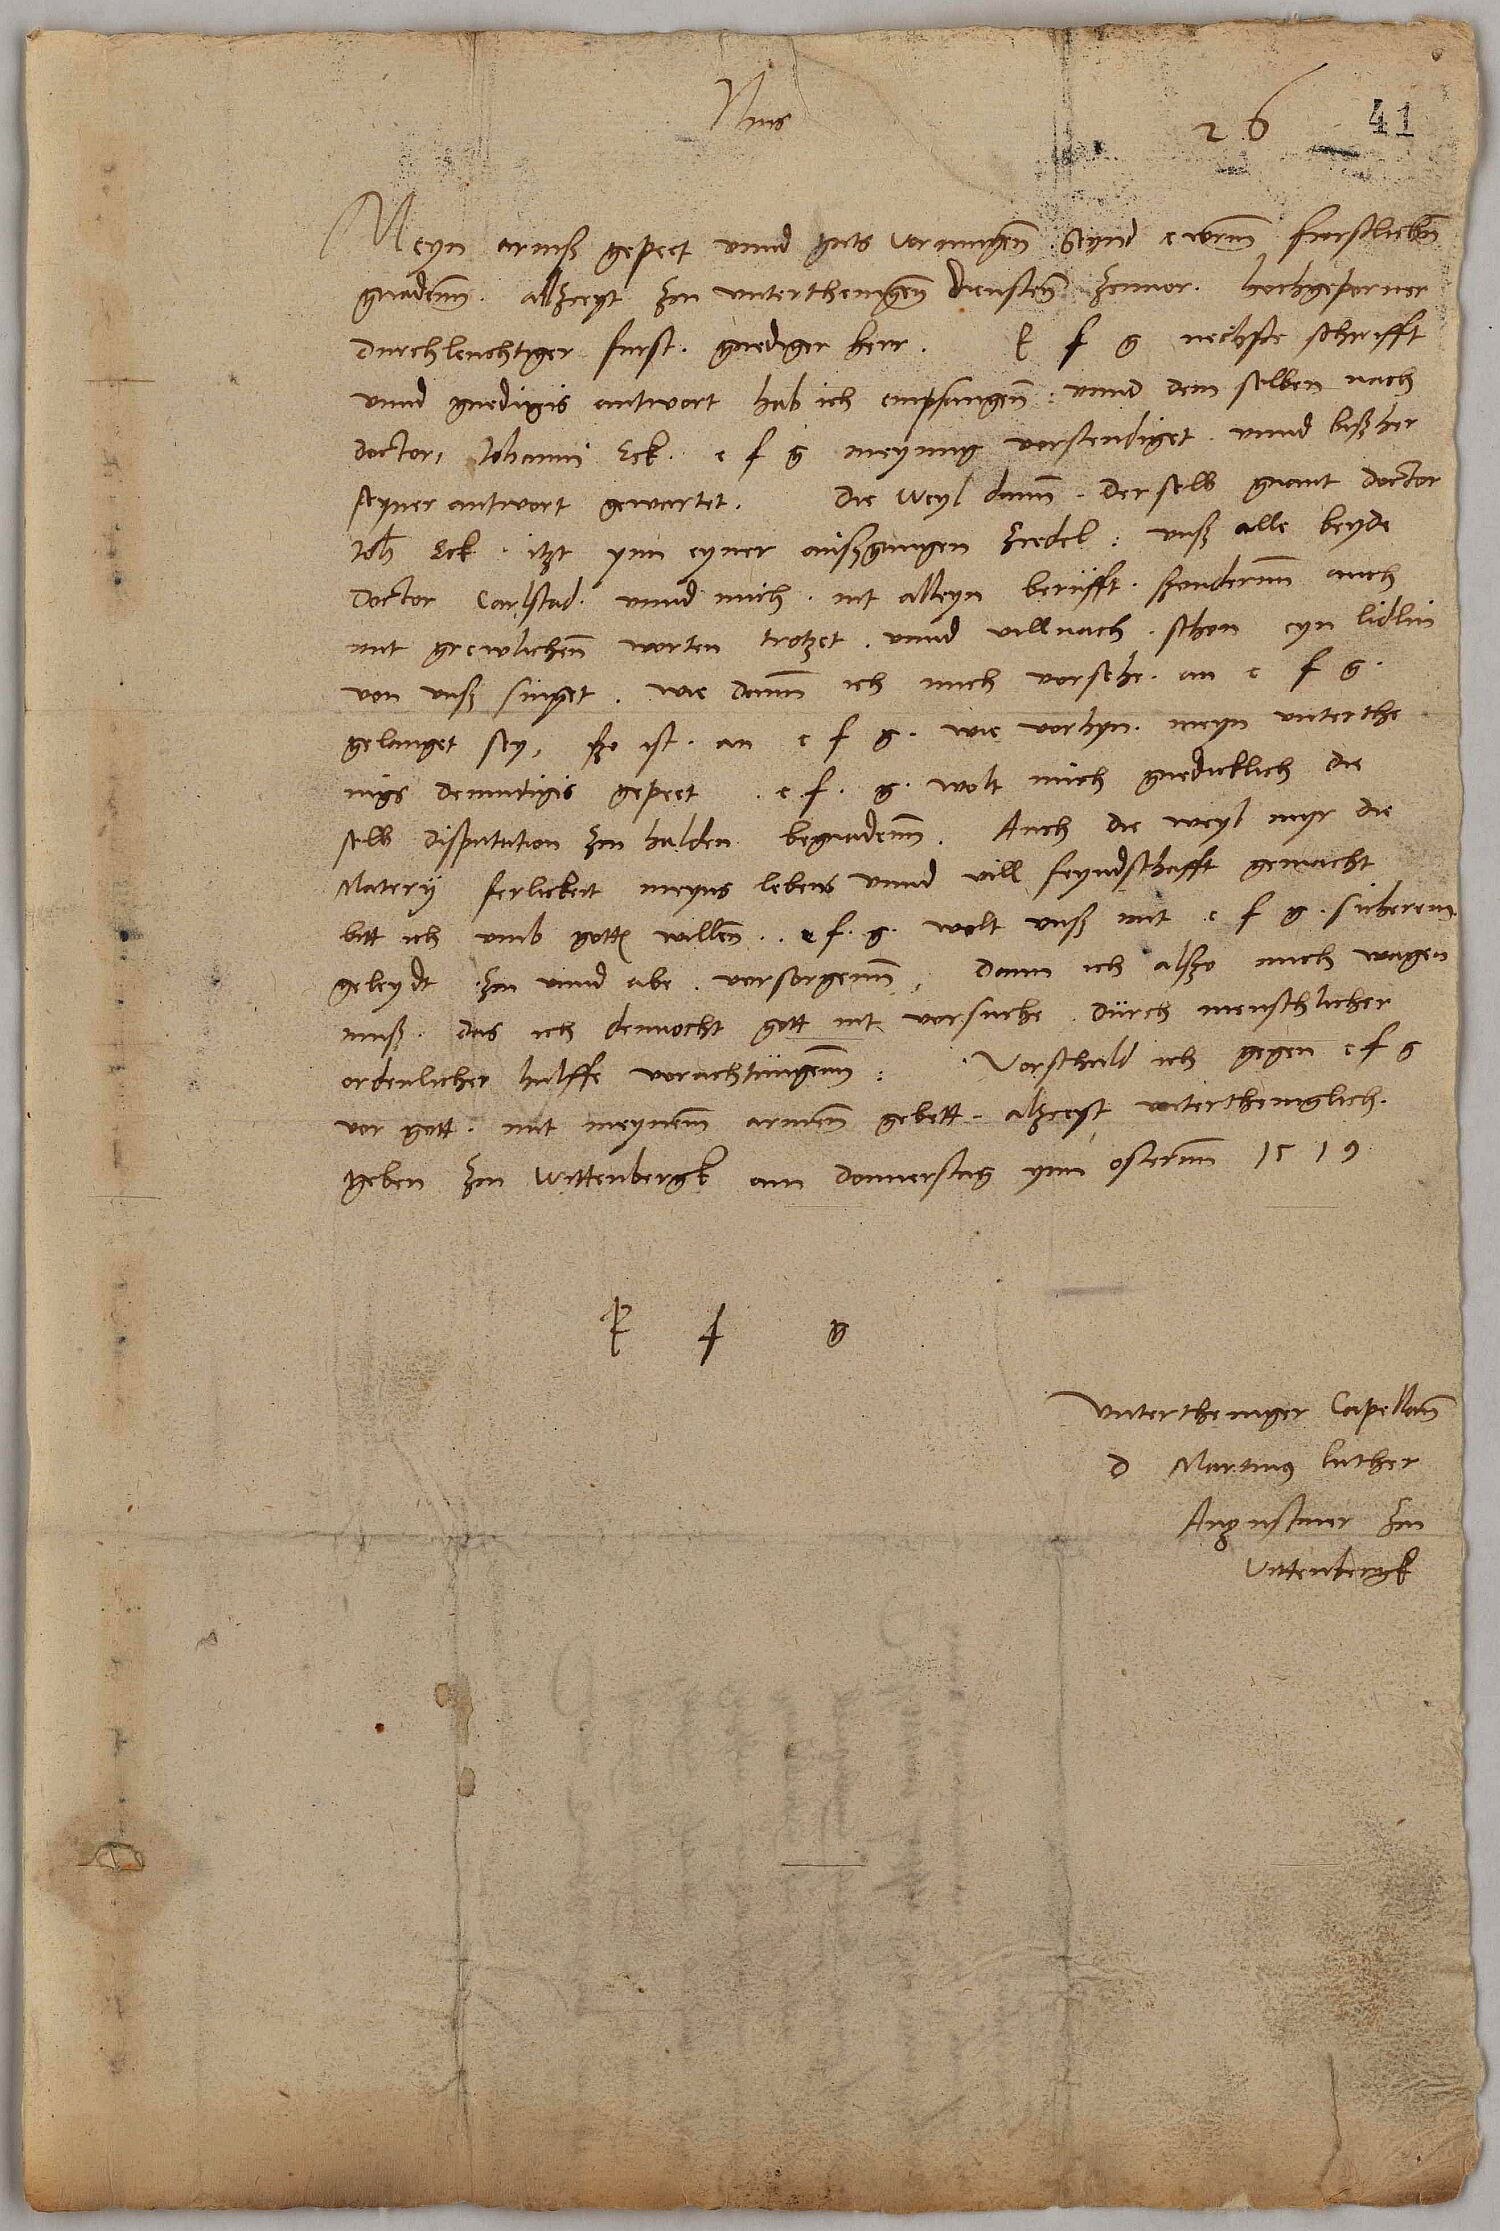 Ihus
26 41
Meyn armß gepeet vnnd guts vormugenn seynd ewrnn furstlichenn
gnadenn. allzceyt zu unterthenigenn diensten zcuuor. hochgeporner
durchleuchtiger furst. gnediger herr. E f g nechste schrifft
vnnd gnedigis antwort hab ich empfangenn: vnnd dem selben nach
doctori Iohanni Eck. e f g meynung vorstendiget. vnnd bißher
seyner antwort gewartet. die weyl dann. der selb gnant doctor
Ioh Eck. itzt ynn eyner außgangen zcedel: vnß alle beyde
doctor Carlstad. vnnd mich. nit alleyn berüfft. ßonderenn auch
mit grewlichenn worten trotzet. vnnd villnach. schon eyn lidlin
von vnß singet. wie dann ich mich vorsehe. an e f g.
gelanget sey, ßo ist. an e f g. wie vorhyn. meyn unterthe
nigs demutigis gepeet. e. f. g. wolt mich gnedicklich die
selb disputation zu halden begnadenn. Auch die weyl myr die
Materÿ ferlickeit meyns lebens vnnd vill feyndschafft gemacht
bitt ich vmb gottis willenn.. e f. g. wolt vnß mit e f g. sicherem
geleydt zu vnnd abe. vorsorgenn, dann ich alßo mich wagen
muß. das ich dennocht gott nit vorsuche. dürch menschlicher
ordenlicher hulffe vorachtüngenn: Vorschuld ich gegen e f g
vor gott. mit meynem armenn gebett. alzceyt unterthenigklich.
geben zu Wittenbergk am donnerstag ynn osternn 1519
E f g
vntertheniger Capellann
D Martinus Luther
Augustiner zu
Vittenbergk